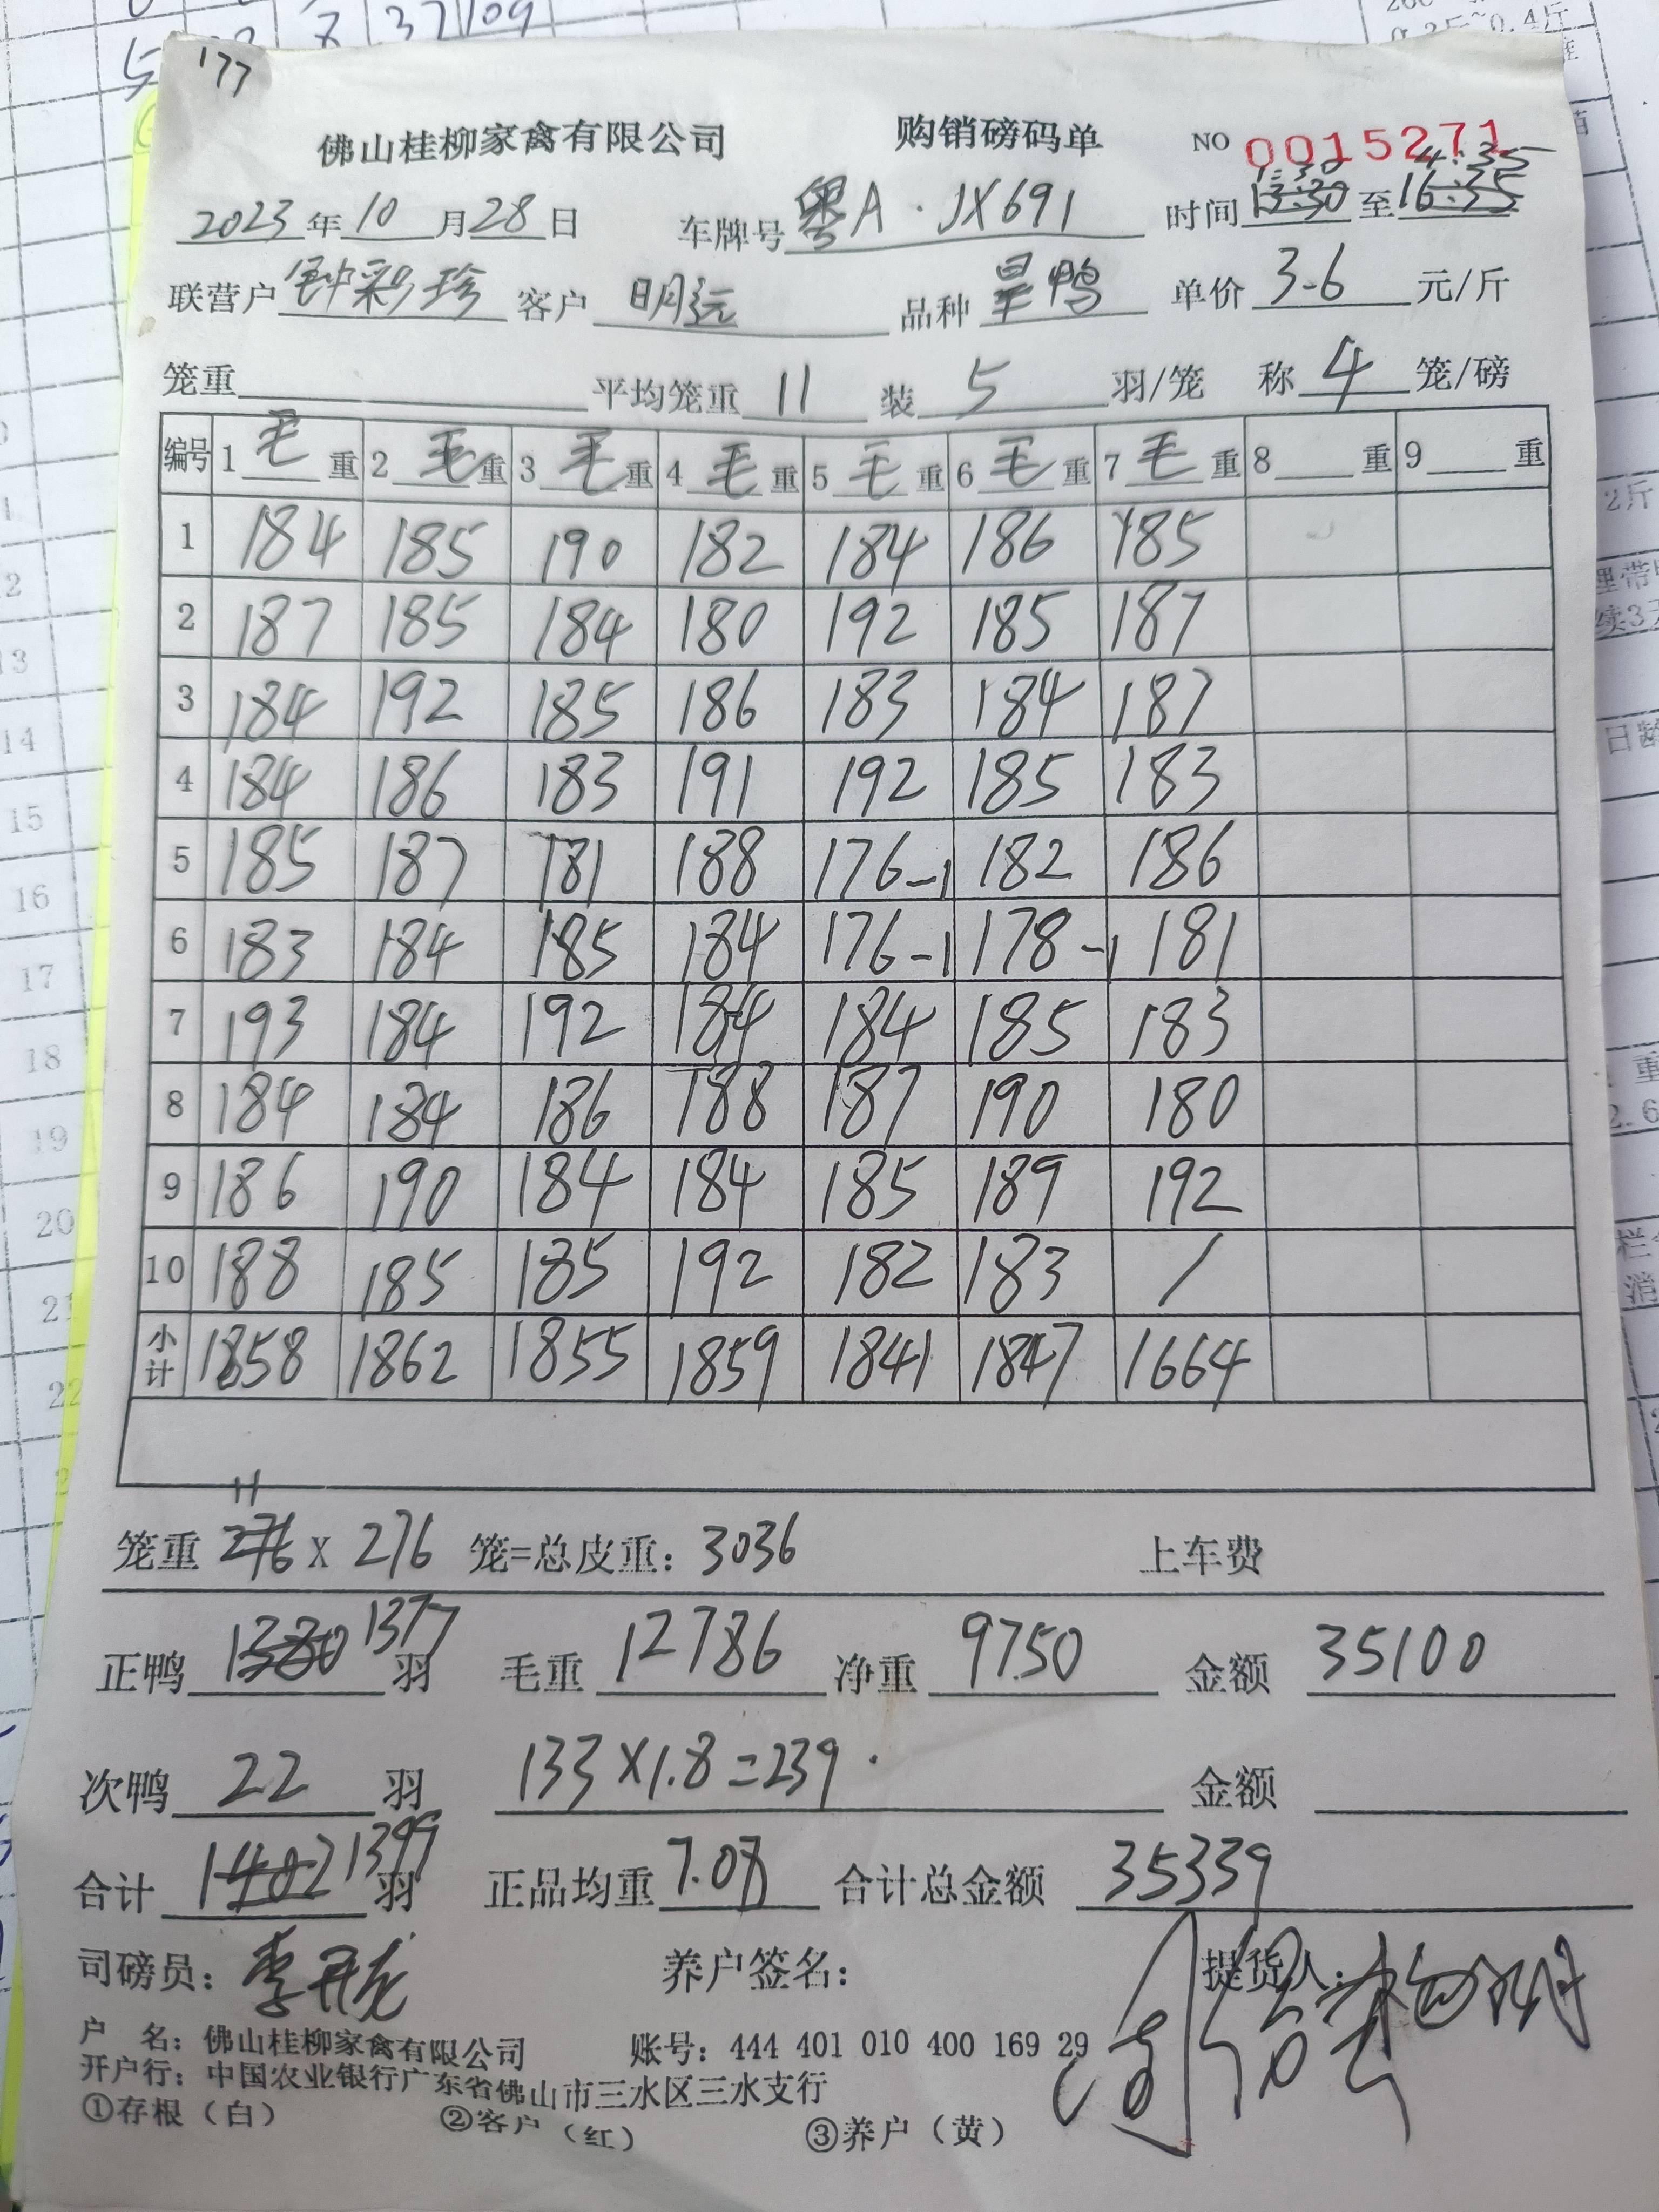 177
佛山桂柳家禽有限公司 购销磅码单 NO 0015271
1:30 4:35
2023年10月28日 车牌号 粤A·JX691 时间 13:30 至 16:35
联营户 钟彩珍 客户 明远 品种 旱鸭 单价 3.6 元/斤
笼重 平均笼重 11 装 5 羽/笼 称 4 笼/磅
编号 1 毛 重 2 毛 重 3 毛 重 4 毛 重 5 毛 重 6 毛 重 7 毛 重 8 重 9 重
1 184 185 190 182 184 186 185
2 187 185 184 180 192 185 187
3 184 192 185 186 183 184 187
4 184 186 183 191 192 185 183
5 185 187 181 188 176-1 182 186
6 183 184 185 184 176-1 178-1 181
7 193 184 192 184 184 185 183
8 184 184 186 188 187 190 180
9 186 190 184 184 185 189 192
10 188 185 185 192 182 183 /
小计 1858 1862 1855 1859 1841 1847 1664
11
笼重 276 X 276 笼=总皮重: 3036 上车费
正鸭 1380 1377 羽 毛重 12786 净重 9750 金额 35100
次鸭 22 羽 133×1.8=239. 金额
合计 1402 1399 羽 正品均重 7.08 合计总金额 35339
司磅员: 养户签名: 提货人:
户 名: 佛山桂柳家禽有限公司 账号: 444 401 010 400 169 29
开户行: 中国农业银行广东省佛山市三水区三水支行
①存根(白) ②客户(红) ③养户(黄)